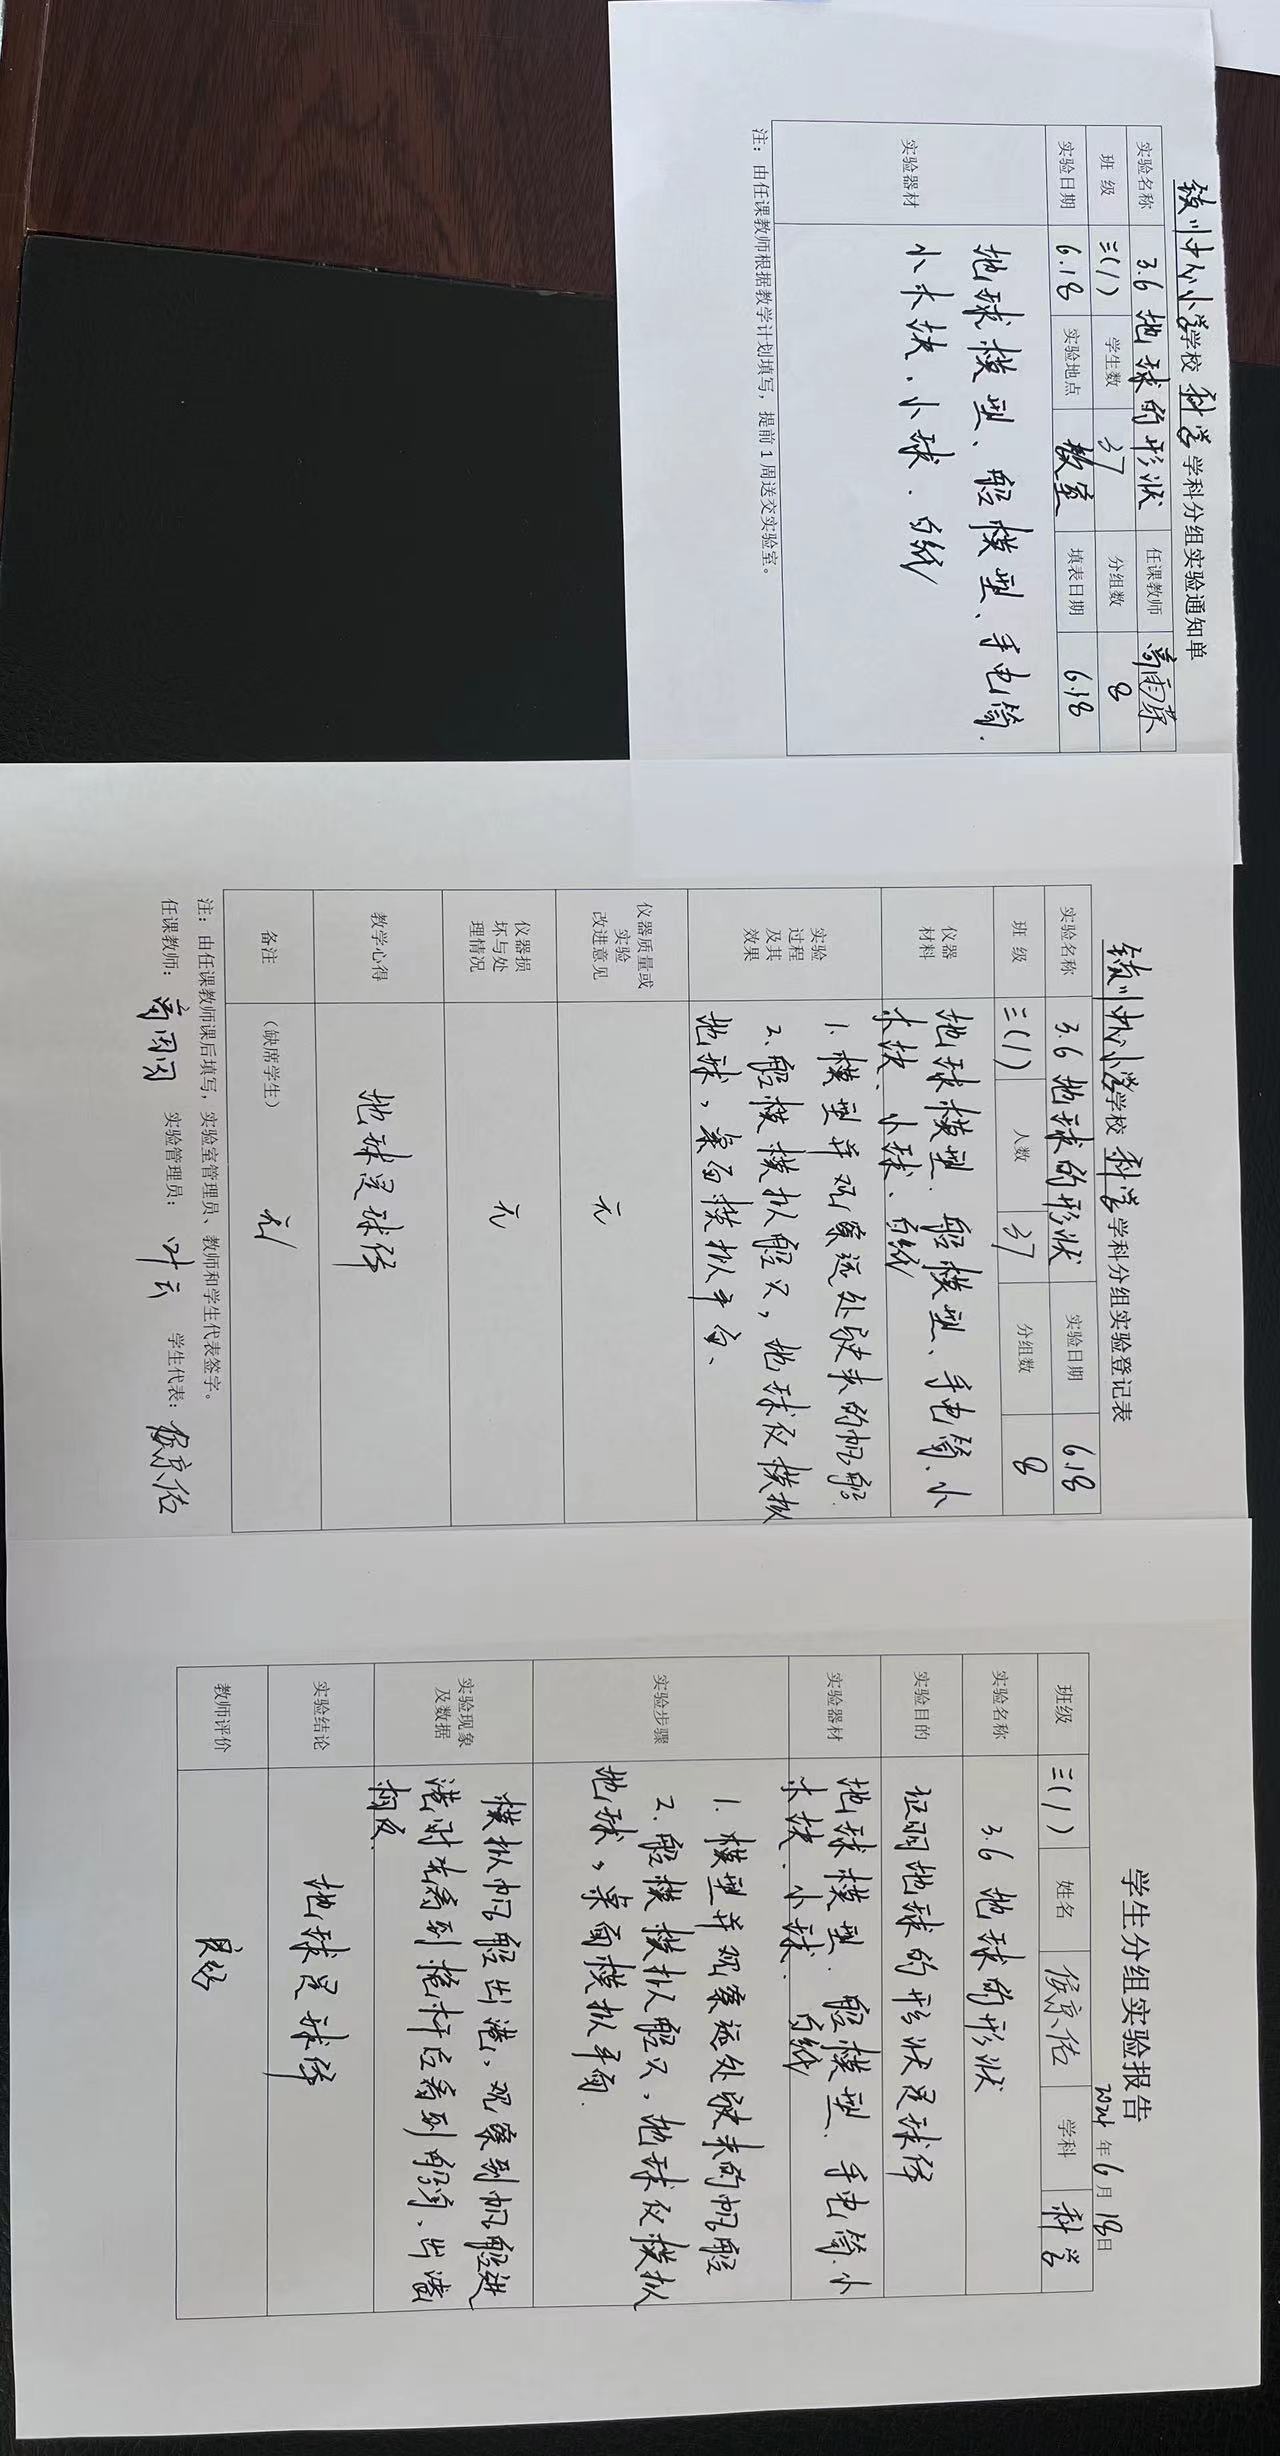 镇川中心小学学校 科学 学科分组实验通知单
实验名称 3.6 地球的形状 任课教师
班 级 三(1) 学生数 37 分组数 8
实验日期 6.18 实验地点 教室 填表日期 6.18
实验器材
地球模型、船模型、手电筒、
小木块、小球、白纸
注：由任课教师根据教学计划填写，提前1周送交实验室。
镇川中心小学学校 科学 学科分组实验登记表
实验名称 3.6 地球的形状 实验日期 6.18
班 级 三(1) 人数 37 分组数 8
仪器
材料
地球模型、船模型、手电筒、小
木块、小球、白纸
实验
过程
及其
效果
1. 模型并观察远处驶来的帆船.
2、船模模拟船只，地球仪模拟
地球，桌面模拟平面、
仪器质量或
实验
改进意见
无
仪器损
坏与处
理情况
无
教学心得 地球是球体
备注 （缺席学生） 无
注：由任课教师课后填写，实验室管理员、教师和学生代表签字。
任课教师： 实验管理员：叶云 学生代表：侯京佑
学生分组实验报告
2024年6月18日
班级 三(1) 姓名 侯京佑 学科 科学
实验名称 3.6 地球的形状
实验目的 证明地球的形状是球体
实验器材
地球模型、船模型、手电筒、小
木块、小球、白纸
实验步骤
1. 模型并观察远处驶来的帆船
2. 船模模拟船只，地球仪模拟
地球，桌面模拟平面.
实验现象
及数据
模拟帆船出港，观察到帆船进
港时先看到桅杆后看到船身、出港
相反
实验结论 地球是球体
教师评价 良好